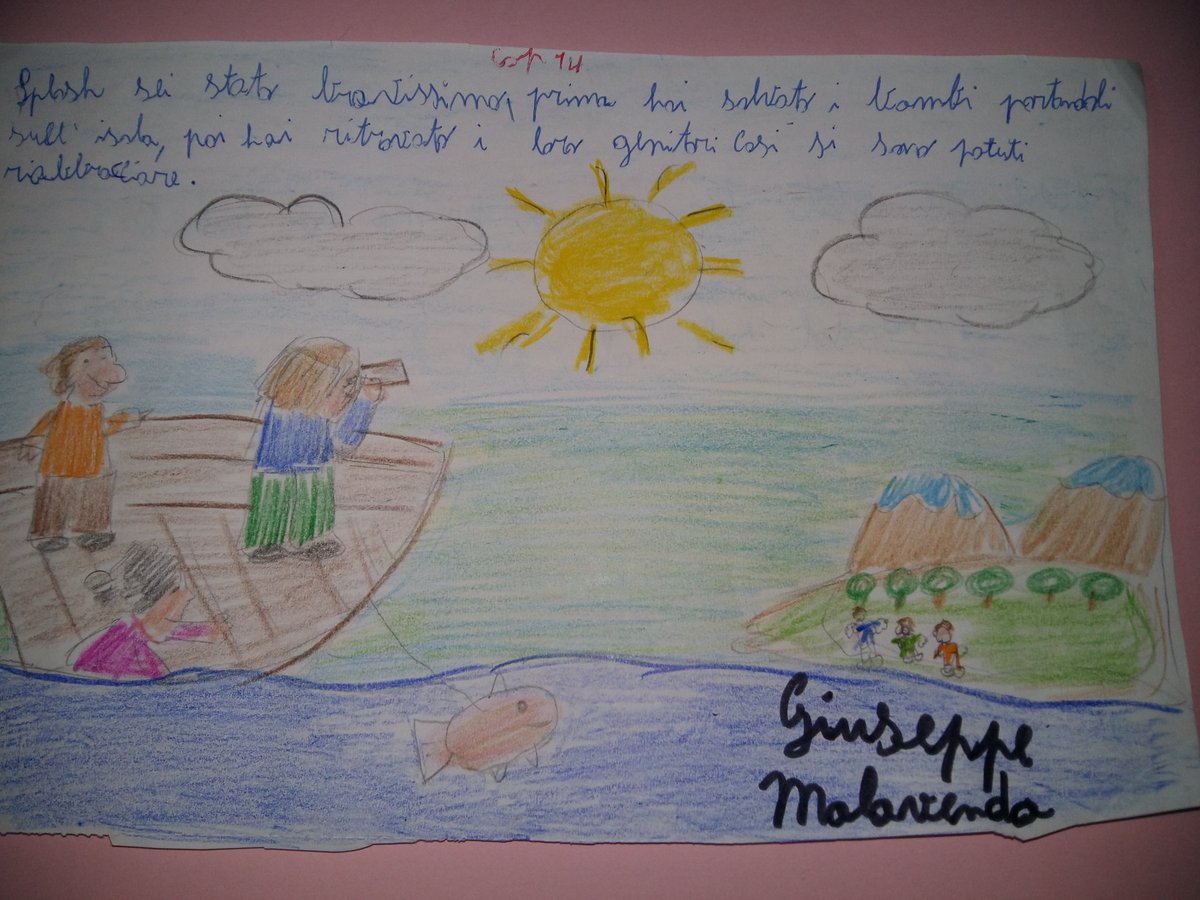 Cap 14
Splash sei stato bravissimo, prima hai salvato i bambi portandoli
sull' isola, poi hai ritrovato i loro genitori Così si sono potuti
riabbracciare.
Giuseppe
Malavenda